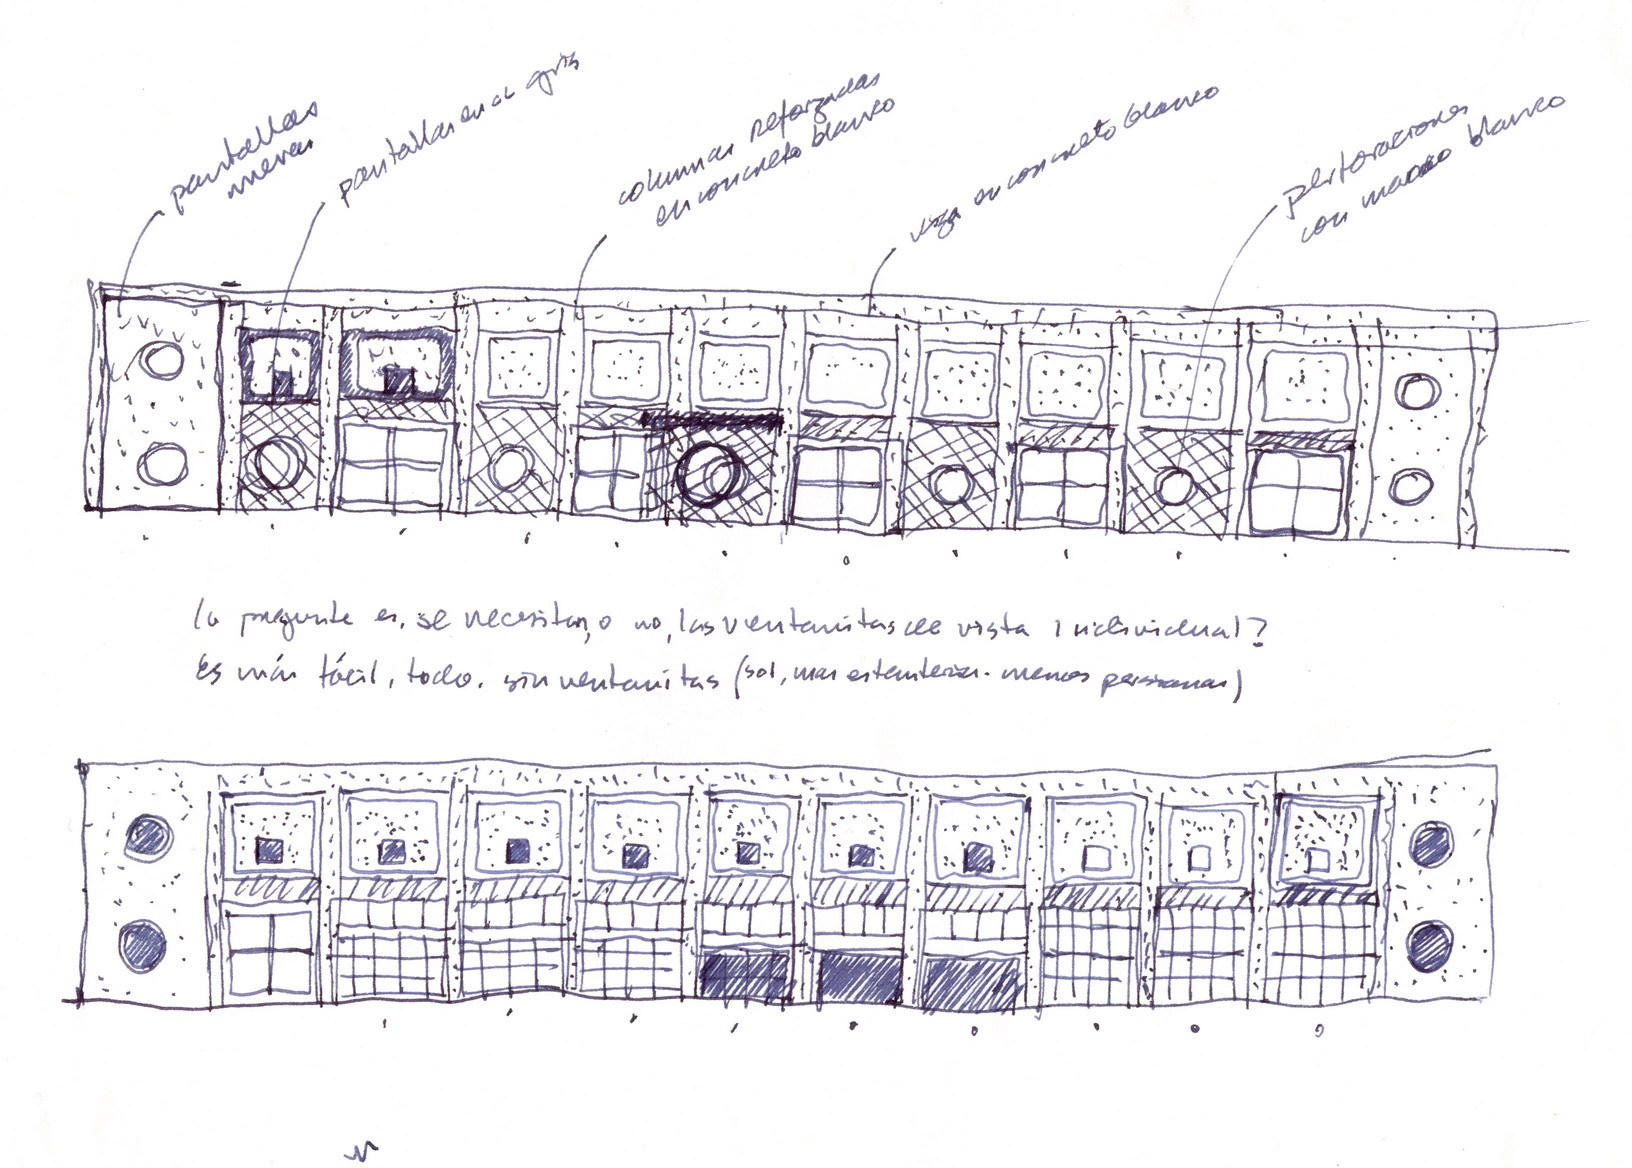 pantallas
nuevas
pantallas en gris
columnas reforzadas
en concreto blanco
viga en concreto blanco
perforaciones
con marco blanco
la pregunta es, se necesitan, o no, las ventanitas de vista individual?
Es más fácil, todo. sin ventanitas (sol, mas estanterias. menos persianas)